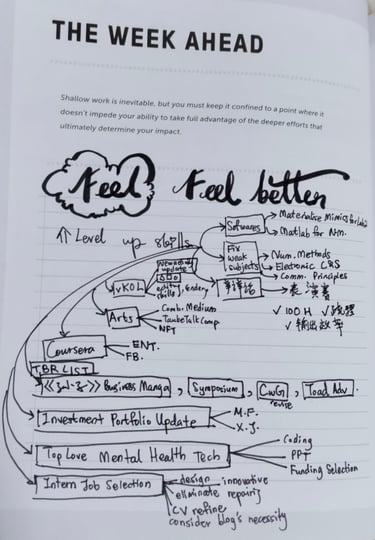 THE WEEK AHEAD
Shallow work is inevitable, but you must keep it confined to a point where it
doesn't impede your ability to take full advantage of the deeper efforts that
ultimately determine your impact.
Feel Feel better
↑ Level up skills
Softwares
Materialise Mimics for
Matlab for Nm.
Fix
weak
subjects
Num. Methods
Electronic CRS
Comm. Principles
update
VKOL
表演赛
✓ 100H ✓
✓ 输出效率
Arts
Comb. Medium
TaubeTalk Comp
NFT
Coursera
ENT.
FB.
TBR LIST
Business Manga, Symposium, CwG, Toad Adv.
revise
Investment Portfolio Update
M.F.
X.J.
Top Love Mental Health Tech
Coding
PPT
Funding Selection
Intern Job Selection
design innovative
eliminate repairing
CV refine
consider blog's necessity